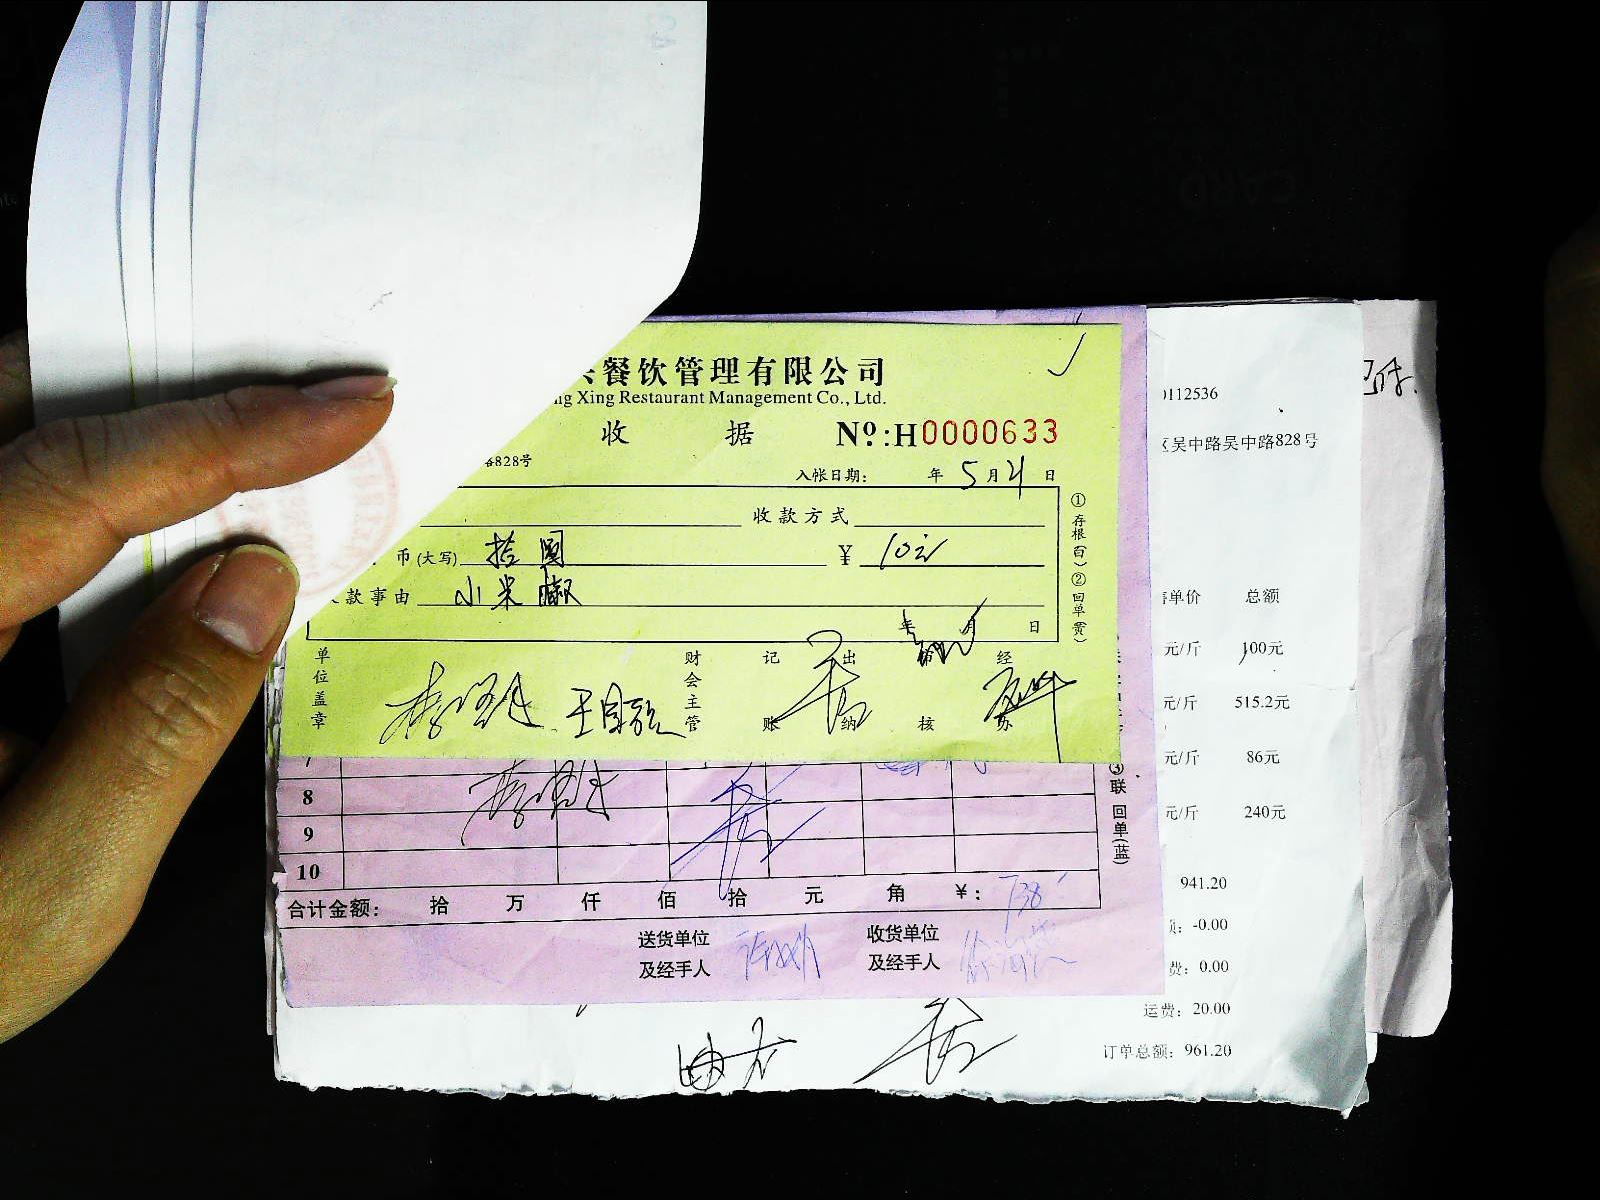 餐饮管理有限公司
ng Xing Restaurant Management Co., Ltd.
收 据 Nº:H0000633
路828号
入帐日期: 年 5 月 21 日
收款方式
币(大写) 拾圆 ¥ 10元
款事由 小米椒
年 月 日
①存根(白)②回单(黄)
单位盖章 财会主管 记账 出纳 审核 经办
8
9
10
③联 回单(蓝)
合计金额: 拾 万 仟 佰 拾 元 角 ¥: 738
送货单位及经手人
收货单位及经手人
0112536
区吴中路吴中路828号
已付.
售单价 总额
元/斤 100元
元/斤 515.2元
元/斤 86元
元/斤 240元
941.20
-0.00
费: 0.00
运费: 20.00
订单总额: 961.20